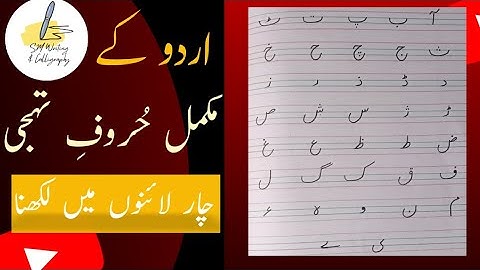 SM Writing
& Calligraphy
اردو کے
مکمل حُروفِ تہجی
چار لائنوں میں لکھنا
آ ب پ ت ٹ
ث ج چ ح خ
د ڈ ذ ر ز
ڑ ژ س ش ص
ض ط ظ ع غ
ف ق ک گ ل
م ن و ہ ء
ی ے